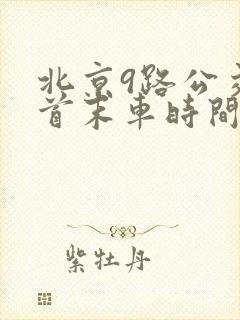 北京9路公交
首末車時間
紫牡丹